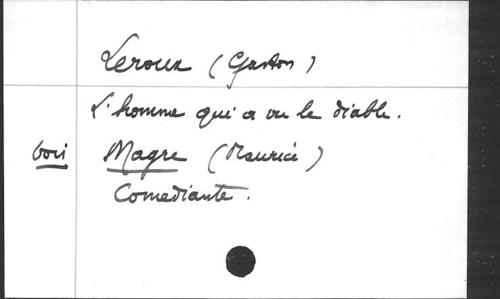 Leroux (Gaston)
L'homme qui a vu le diable.
voir Magre (Maurice)
Comediante.